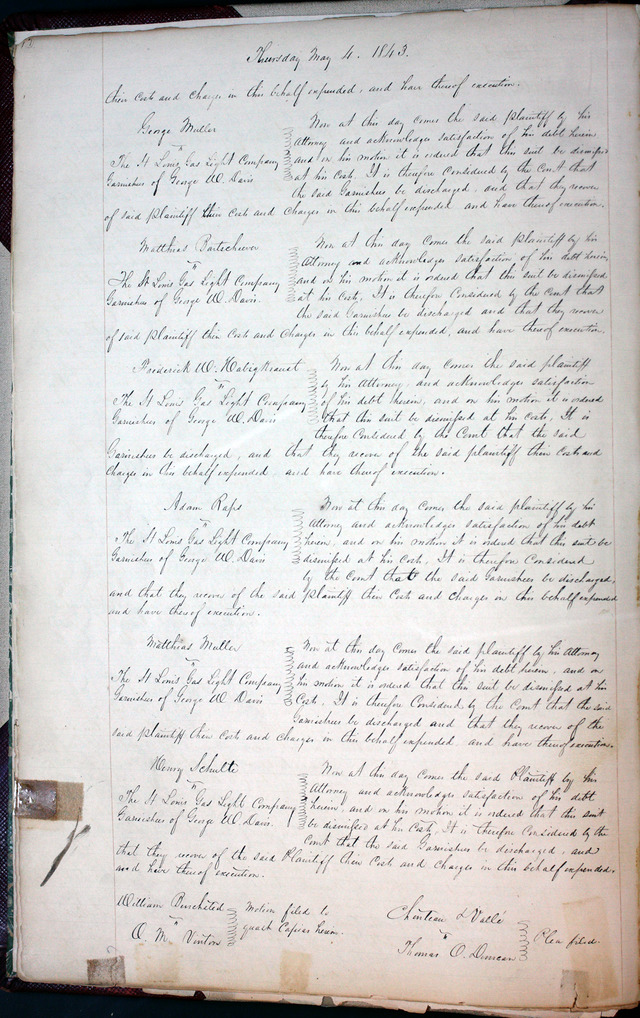 Thursday May 4. 1843.
their costs and charges in this behalf expended, and have thereof execution.
George Muller
vs
The St Louis Gas Light Company
Garnishees of George W. Davis
Now at this day comes the said plaintiff by his
Attorney and acknowledges satisfaction of his debt herein
and on his motion it is ordered that this suit be dismissed
at his Costs, It is therefore Considered by the Court that
the said Garnishees be discharged, and that they recover
of said plaintiff their Costs and Charges in this behalf expended and have thereof execution.
Matthias
vs
The St Louis Gas Light Company
Garnishees of George W. Davis
Now at this day comes the said plaintiff by his
Attorney and acknowledges satisfaction of his debt herein,
and on his motion it is ordered that this suit be dismissed
at his Costs, It is therefore Considered by the Court that
the said Garnishees be discharged and that they recover
of said plaintiff their Costs and Charges in this behalf expended, and have thereof execution
Frederick W.
vs
The St Louis Gas Light Company
Garnishees of George W. Davis
Now at this day comes the said plaintiff
by his Attorney, and acknowledges satisfaction
of his debt herein, and on his motion it is ordered
that this suit be dismissed at his costs, It is
therefore Considered by the Court that the said
Garnishees be discharged, and that they recover of the said plaintiff their Costs and
Charges in this behalf expended, and have thereof execution.
Adam Raps
vs
The St Louis Gas Light Company
Garnishees of George W. Davis
Now at this day comes the said plaintiff by his
Attorney and acknowledges satisfaction of his debt
herein, and on his motion it is ordered that this suit be
dismissed at his Costs, It is therefore Considered
by the Court that the said Garnishees be discharged,
and that they recover of the said plaintiff their Costs and Charges in this behalf expended
and have thereof execution.
Matthias Muller
vs
The St Louis Gas Light Company
Garnishees of George W. Davis
Now at this day comes the said plaintiff by his Attorney
and acknowledges satisfaction of his debt herein, and on
his motion it is ordered that this suit be dismissed at his
Costs, It is therefore Considered by the Court that the said
Garnishees be discharged and that they recover of the
said plaintiff their Costs and Charges in this behalf expended and have thereof execution.
Henry Schulte
vs
The St Louis Gas Light Company
Garnishees of George W. Davis.
Now at this day comes the said Plaintiff by his
Attorney and acknowledges satisfaction of his debt
herein, and on his motion it is ordered that this suit
be dismissed at his Costs, It is therefore Considered by the
Court that the said Garnishees be discharged, and
that they recover of the said Plaintiff their Costs and Charges in this behalf expended,
and have thereof execution.
William
vs
O. M. Vinton
Motion filed to
quash Capias herein.
Chouteau & Vallé
vs
Thomas O. Duncan
Plea filed.